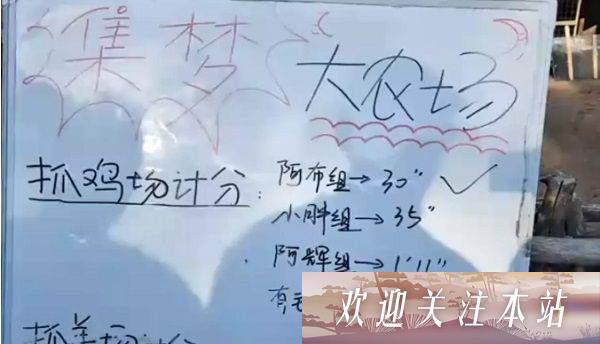 集梦
大农场
抓鸡场计分:
阿布组→30"
小胖组→35"
阿辉组→1'11"
有
欢迎关注本站
抓羊场计分